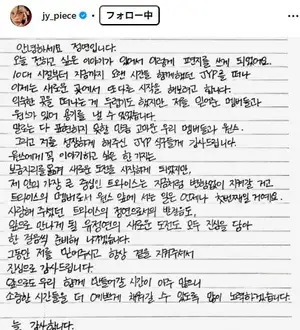 jy_piece
フォロー中
안녕하세요 정연입니다.
오늘 전하고 싶은 이야기가 있어서 이렇게 편지를 쓰게 되었어요.
10대 시절부터 지금까지 오랜 시간을 함께했던 JYP를 떠나
이제는 새로운 곳에서 또 다른 시작을 해보려고 합니다.
익숙한 곳을 떠나는 게 두렵기도 했지만, 저를 믿어준 멤버들과
원스가 있어 용기를 낼 수 있었습니다.
말로는 다 표현하지 못할 만큼 고마운 우리 멤버들과 원스,
그리고 저를 성장하게 해주신 JYP 식구들께 감사드립니다.
원스에게 꼭 이야기하고 싶은 한 가지는,
보금자리를 옮겨 새로운 도전을 시작하게 되었지만,
제 안의 가장 큰 중심인 트와이스는 지금처럼 변함없이 지켜갈 거고
트와이스의 멤버로서 원스 앞에 서는 일은 언제나 첫번째일 거예요.
사랑해 주셨던 트와이스의 정연으로서의 반경도,
앞으로 만나게 될 유정연의 새로운 도전도 모두 진심을 담아
한 걸음씩 준비해 나가겠습니다.
그동안 저를 믿어주고 항상 곁을 지켜주셔서
진심으로 감사드립니다.
앞으로도 우리 함께 만들어갈 시간이 아주 많으니
소중한 시간들을 더 예쁘게 채워갈 수 있도록 많이 노력하겠습니다.
늘 감사합니다.